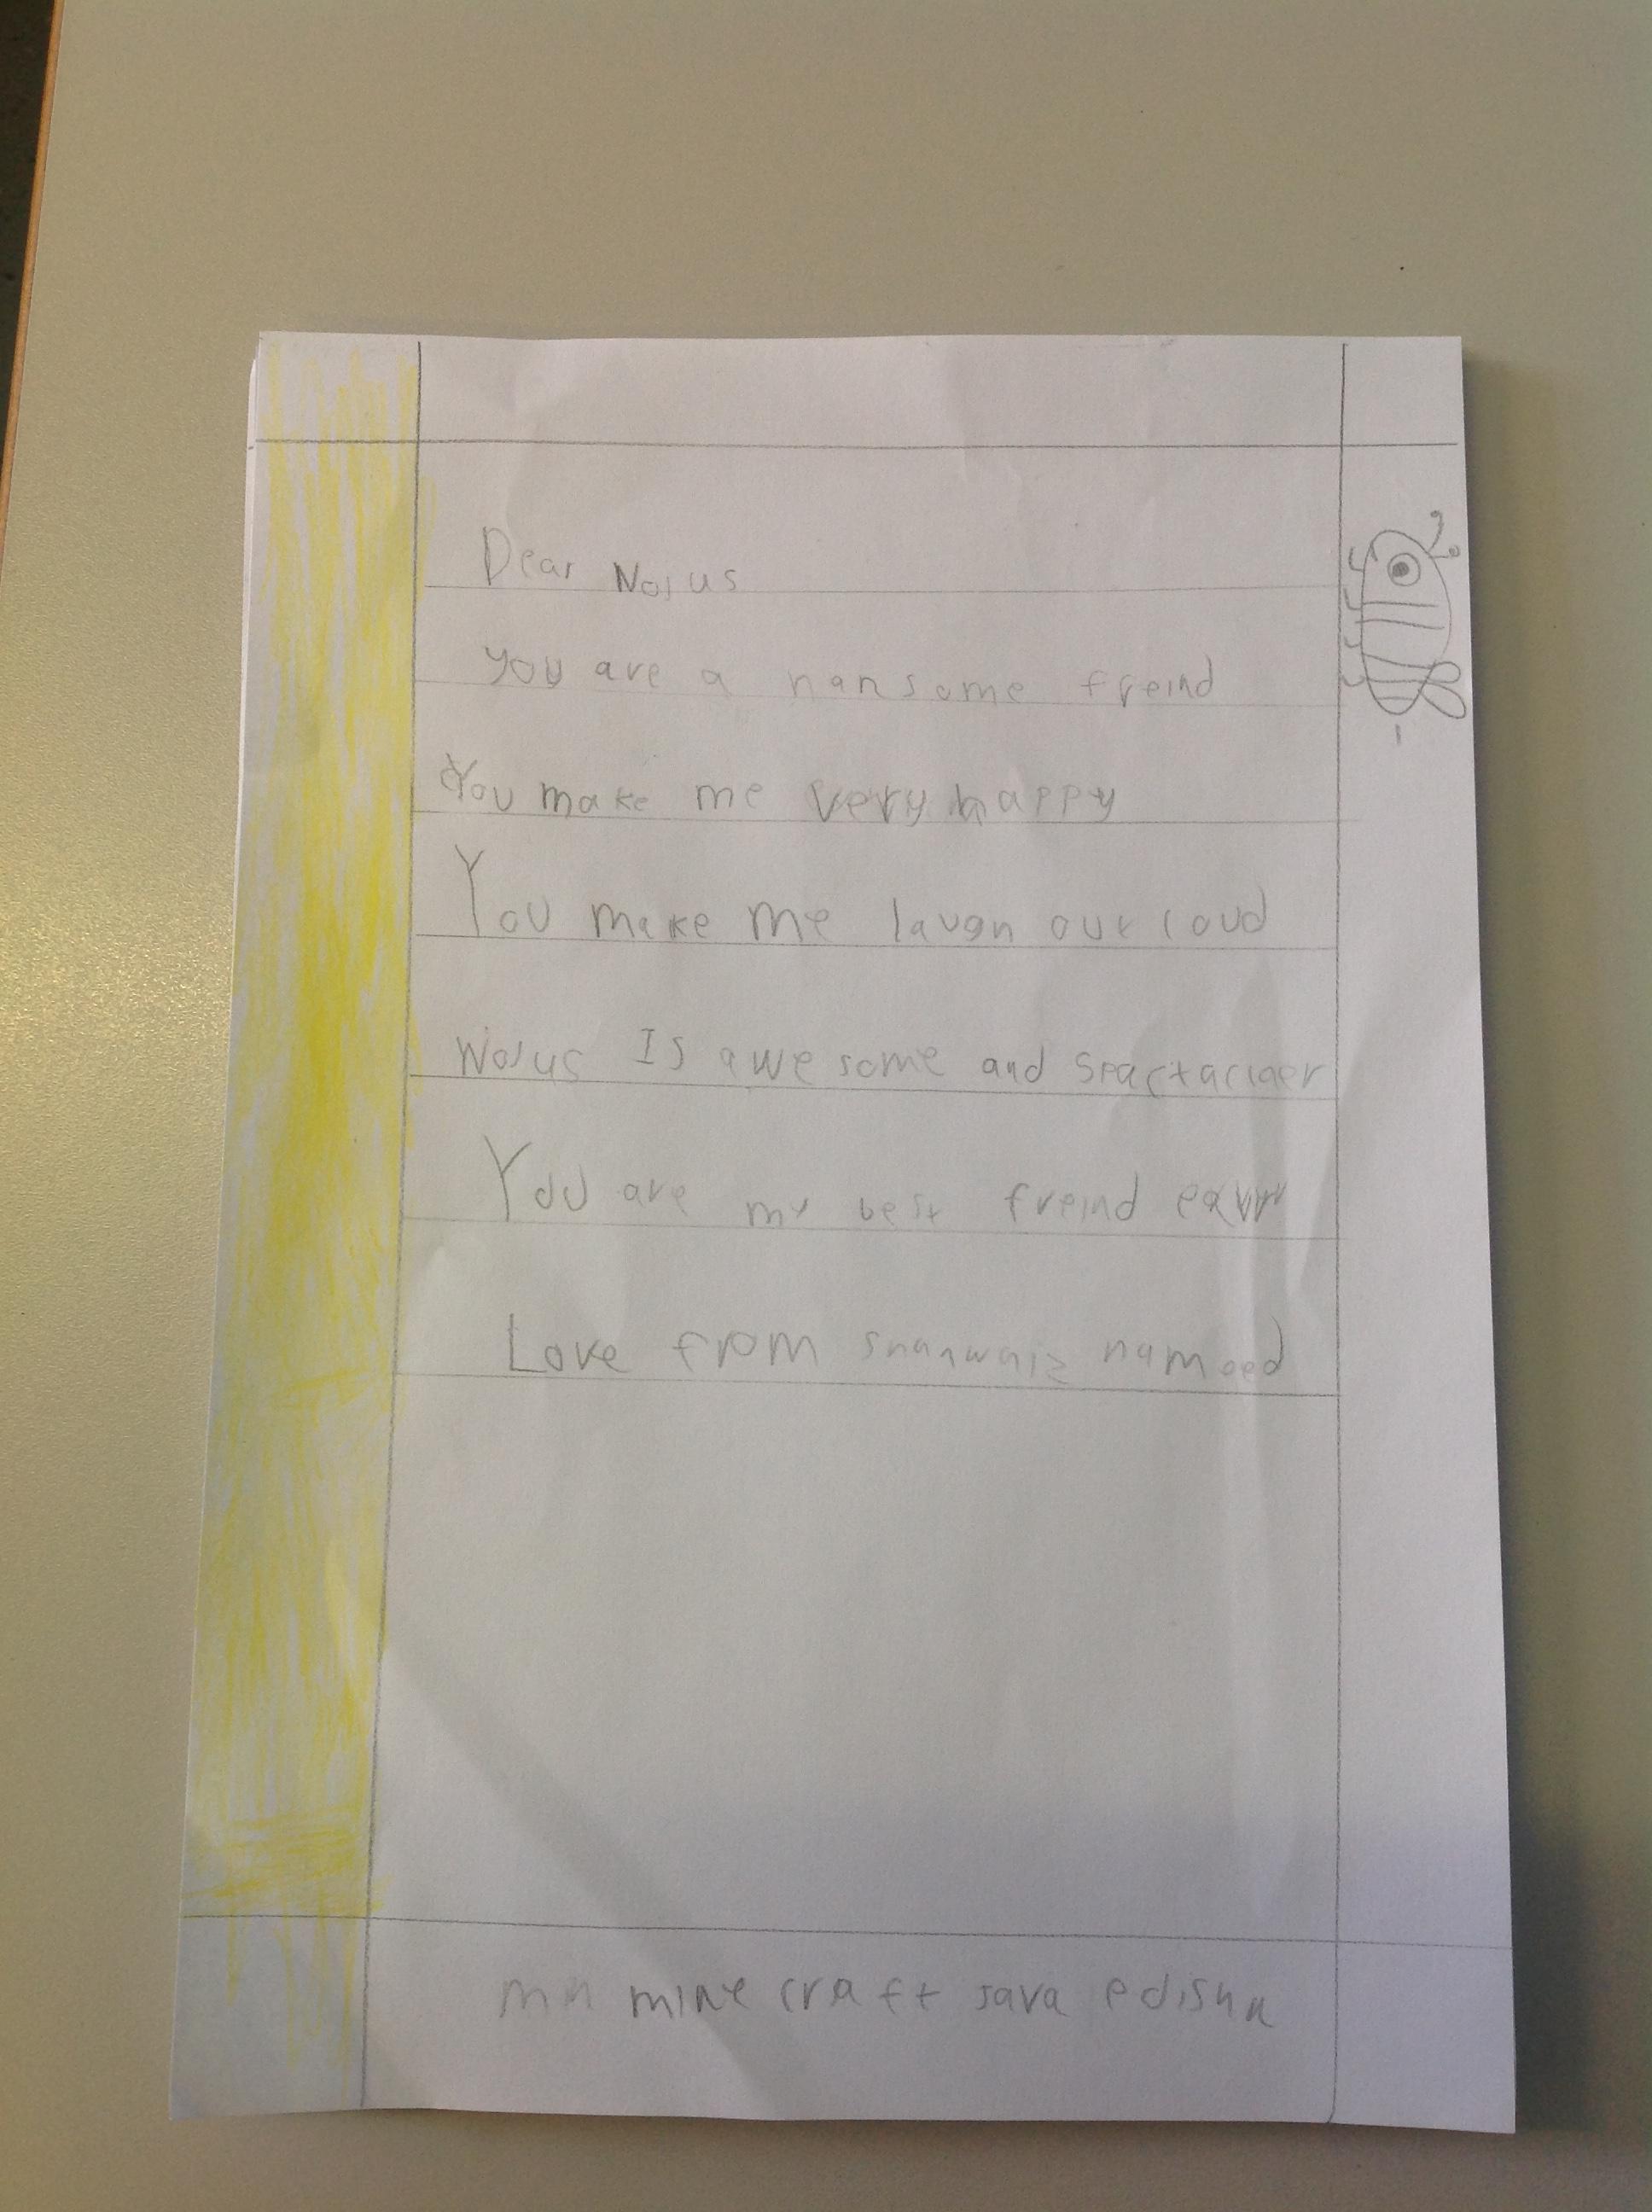 Dear Nojus
you are a hansome freind
You make me very happy
You make me laugh out loud
Nojus Is awesome and spactaculer
You are my best freind
Love from shanwaiz hameed
mine craft java edishn